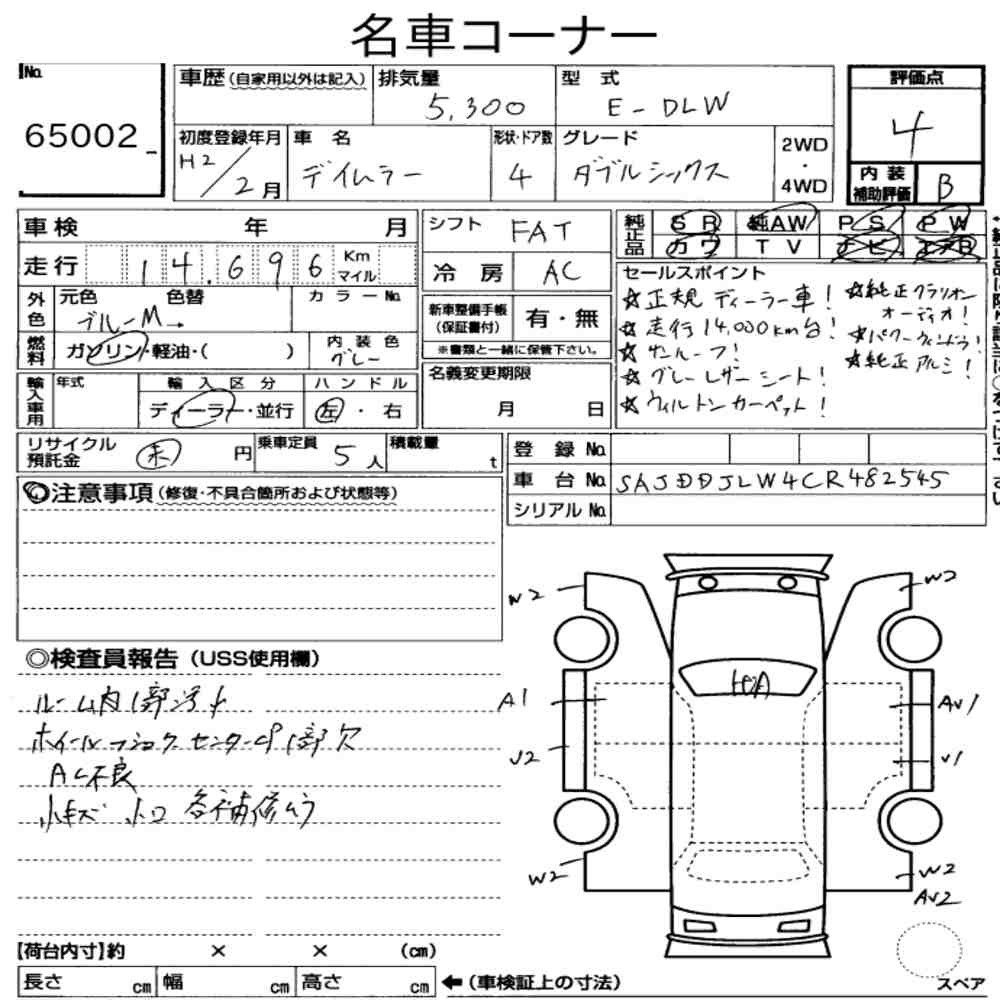 名車コーナー
No. 65002
車歴 (自家用以外は記入) 排気量 5,300 型式 E-DLW 評価点 4
初度登録年月 H2/2月 車名 デイムラー 形状・ドア数 4 グレード ダブルシックス 2WD・4WD 内装補助評価 B
車検 年 月 シフト FAT 純正品 SR 純AW PS PW
カワ TV ナビ エアB
走行 14,696 Km マイル 冷房 AC
セールスポイント
外色 元色 色替 ブルーM→ カラーNo.
☆正規ディーラー車! ☆純正クラリオンオーディオ!
新車整備手帳(保証書付) 有・無 ☆走行14,000km台! ☆パワーウィンドウ!
燃料 ガソリン・軽油・( ) 内装色 グレー ※書類と一緒に保管下さい。 ☆サンルーフ! ☆純正アルミ!
☆グレーレザーシート!
☆ウィルトンカーペット!
輸入車用 年式 輸入区分 ディーラー・並行 ハンドル 左・右 名義変更期限 月 日
リサイクル預託金 未 円 乗車定員 5人 積載量 t 登録No.
車台No. SAJDDJLW4CR482545
シリアルNo.
◎注意事項 (修復・不具合箇所および状態等)
◎検査員報告 (USS使用欄)
ルーム内1部汚れ
ホイールフロックセンターCP1部欠
AC不良
小キズ 小凹 各補修ムラ
W2 W2
A1 AU1
U2 U1
W2 W2
AU2
【荷台内寸】約 × × (cm)
長さ cm 幅 cm 高さ cm ←(車検証上の寸法) スペア